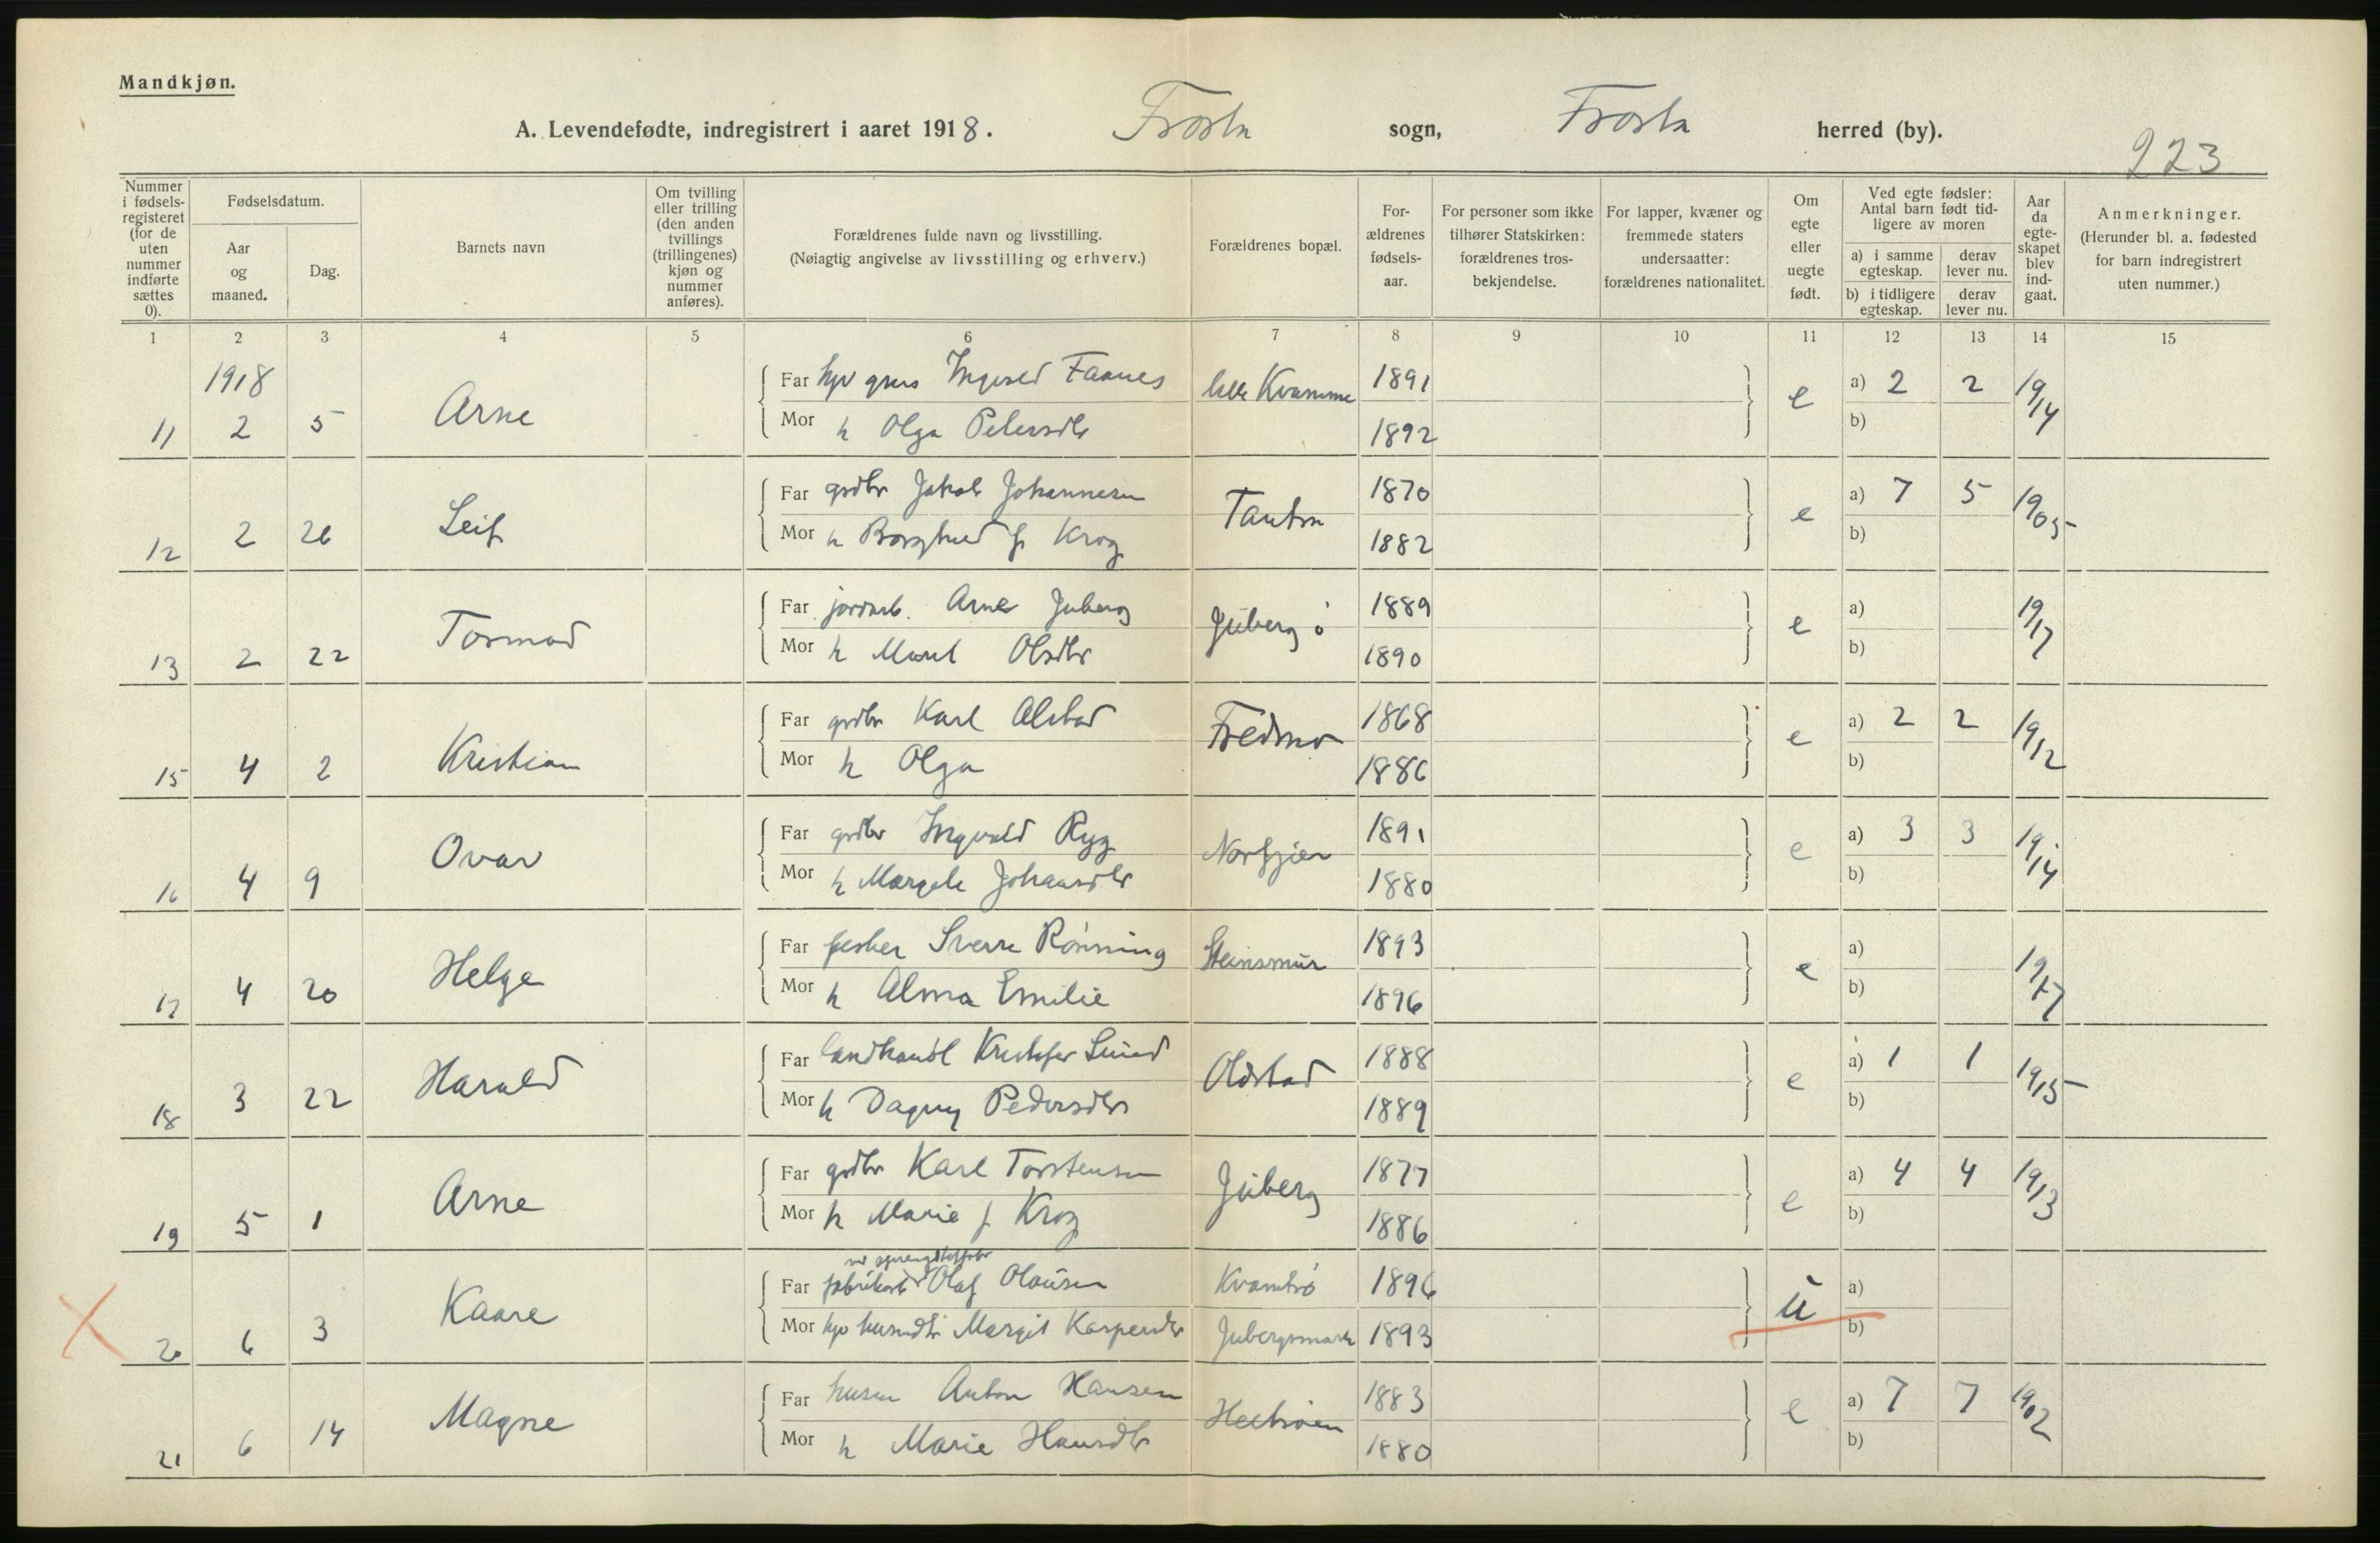 Mandkjøn.
A. Levendefødte, indregistrert i aaret 1918. Frosta sogn, Frosta herred (by).
223
Nummer i fødselsregisteret (for de uten nummer indførte sættes 0).
Fødselsdatum.
Aar og maaned.
Dag.
Barnets navn
Om tvilling eller trilling (den anden tvillings (trillingenes) kjøn og nummer anføres).
Forældrenes fulde navn og livsstilling.
(Nøiagtig angivelse av livsstilling og erhverv.)
Forældrenes bopæl.
Forældrenes fødselsaar.
For personer som ikke tilhører Statskirken: forældrenes trosbekjendelse.
For lapper, kvæner og fremmede staters undersaatter: forældrenes nationalitet.
Om egte eller uegte født.
Ved egte fødsler: Antal barn født tidligere av moren
a) i samme egteskap.
derav lever nu.
b) i tidligere egteskap.
derav lever nu.
Aar da egteskapet blev indgaat.
Anmerkninger.
(Herunder bl. a. fødested for barn indregistrert uten nummer.)
1 2 3 4 5 6 7 8 9 10 11 12 13 14 15
1918
Far Ingvald Faanes Kvamme 1891 a) 2 2 19/14
11 2 5 Arne Mor h Olga Petersdtr 1892 e b)
Far grdbr Jakob Johannesen 1870 a) 7 5 19/05
12 2 26 Leif Mor h Borghild f Krog Tautra 1882 e b)
Far jordarb. Arne Juberg 1889 a) 19/17
13 2 22 Tormod Mor h Marit Olsdtr Juberg ö 1890 e b)
Far grdbr Karl Alstad 1868 a) 2 2 19/12
15 4 2 Kristian Mor h Olga Fredmo 1886 e b)
Far grdbr Ingvald Ryg 1891 a) 3 3 19/14
16 4 9 Ovar Mor h Margele Johansdtr 1880 e b)
Far fisker Sverre Rønning Steinsmur 1893 a) 19/17
17 4 20 Helge Mor h Alma Emilie 1896 e b)
Far landhandl Kristofer Lund 1888 a) 1 1 19/15
18 3 22 Harald Mor h Dagny Pedersdtr Oldstad 1889 e b)
Far grdbr Karl Torstensen 1877 a) 4 4 19/13
19 5 1 Arne Mor h Marie f Krog Juberg 1886 e b)
Far fabrikarb Olaf Olausen Kvamtrø 1896 a)
20 6 3 Kaare Mor Margit Kaspersdtr Jubergsmark 1893 u b)
Far husm Anton Hansen 1883 a) 7 7 19/02
21 6 14 Magne Mor h Marie Hansdtr 1880 e b)